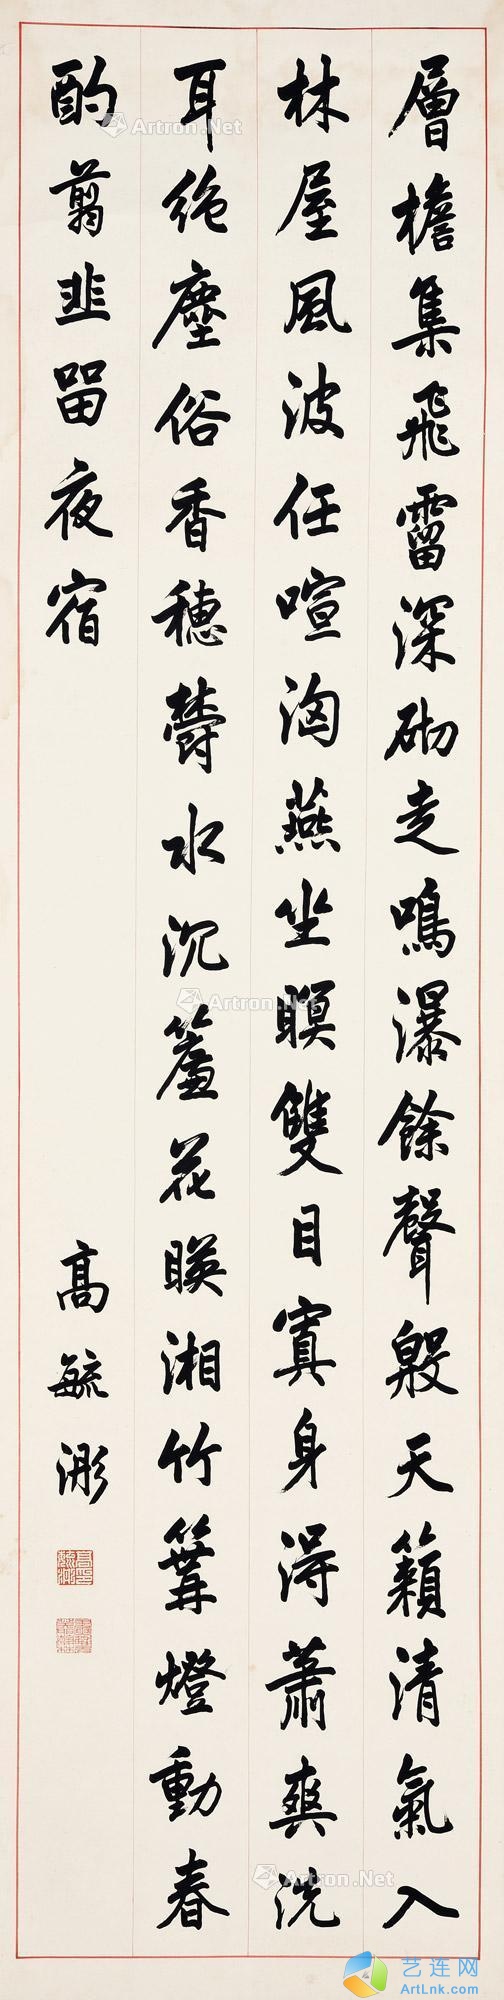 層檐集飛霤深砌走鳴瀑餘聲殷天籟清氣入
林屋風波任喧洶燕坐瞑雙目寘身得蕭爽洗
耳絶塵俗香穗欝水沉簷花暎湘竹篝燈動春
酌翦韭留夜宿
高毓浵
Artron.Net
Artron.Net
Artron.Net
Artron.Net
Artron.Net
艺连网
ArtLnk.com